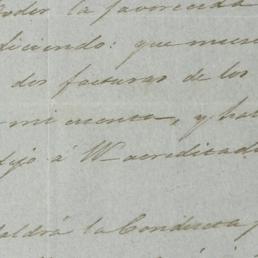 poder la favorecida
diciendo: que
dos facturas de los
mi cuenta, y
dijo á W acreditad
saldrá la Conducta